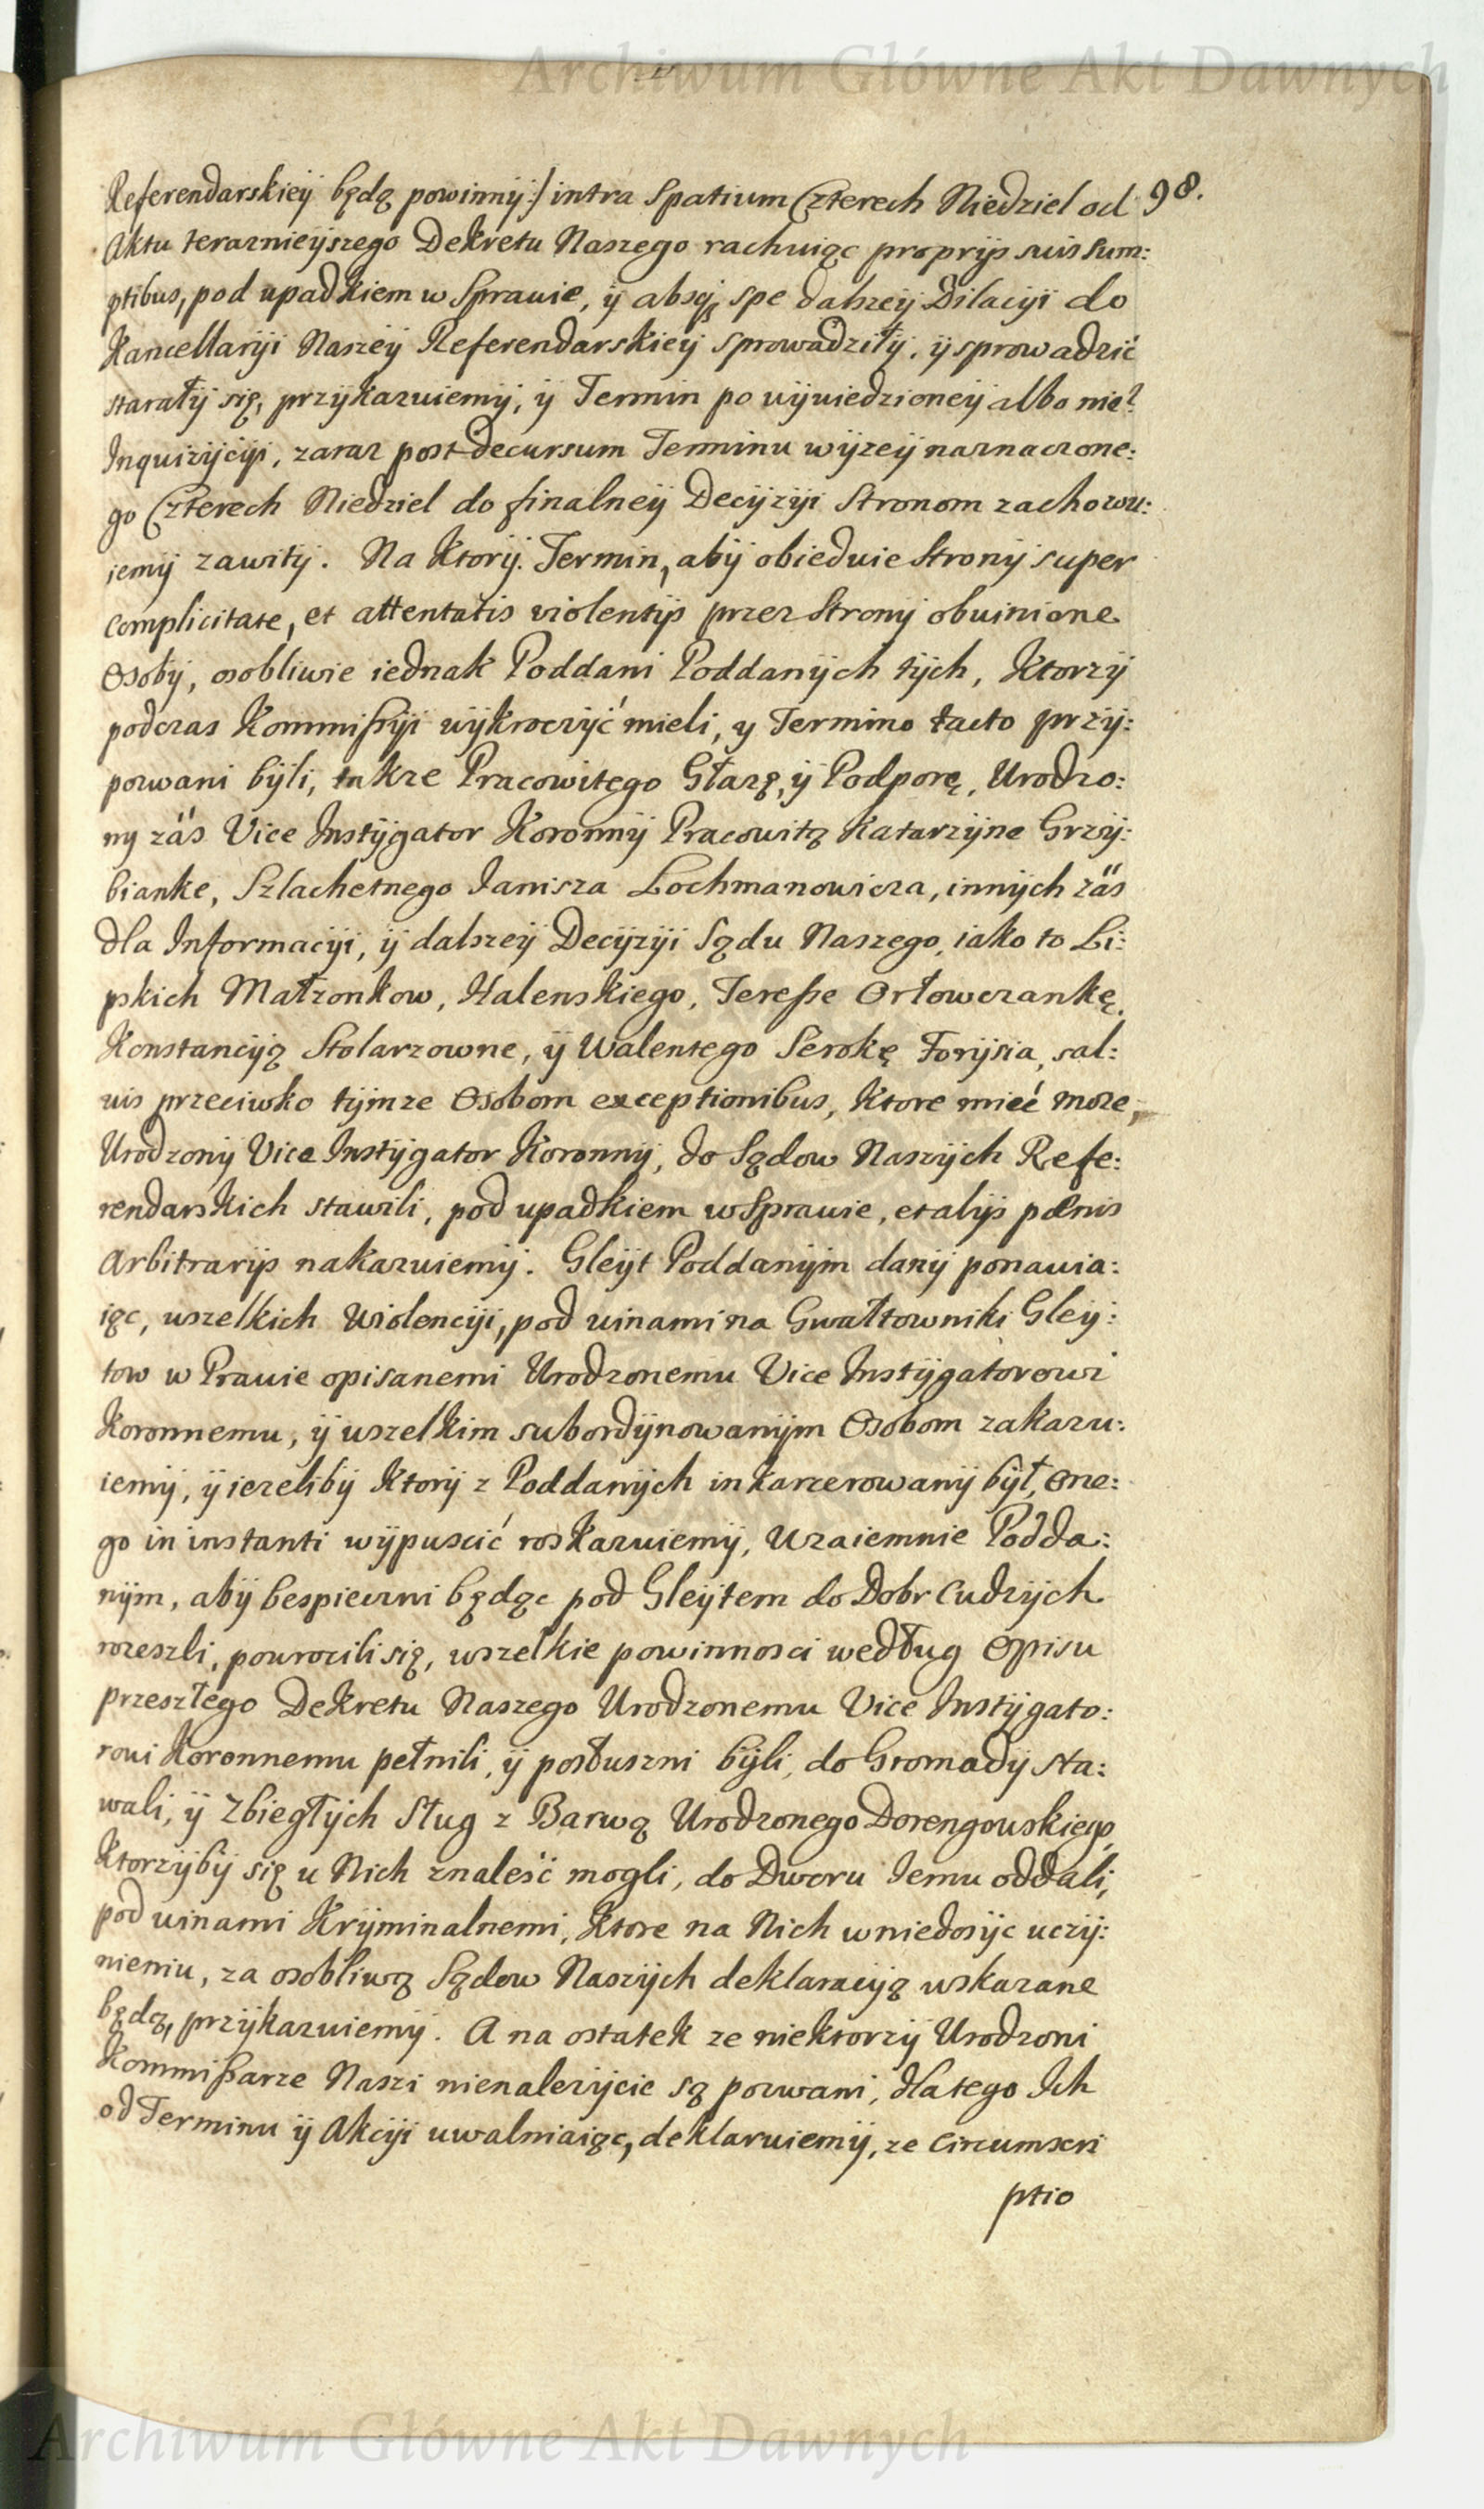 Archiwum Główne Akt Dawnych
98.
Referendarskieÿ będą powinnÿ:/ intra Spatium Czterech Niedziel od
Aktu terazniejszego Dekretu Naszego rachuiąc proprÿs suis sum:
ptibus, pod upadkiem w Sprawie, ÿ absq; spe dalszeÿ Dilacÿi do
Kancellarÿi Naszeÿ Referendarskieÿ sprowadziłÿ, ÿ sprowadzić
starałÿ się, przÿkazuiemÿ, ÿ Termin po wÿwiedzioneÿ albo nie?
Inquizÿcÿi, zaraz post decursum Terminu wÿzeÿ naznaczone:
go Czterech Niedziel do finalneÿ Decÿzÿi Stronom zachowu:
iemÿ zawitÿ. Na Ktorÿ Termin, abÿ obiedwie Stronÿ super
complicitate, et attentatis violentÿs przez Stronÿ obwinione
Osobÿ, osobliwie iednak Poddani Poddanÿch tÿch, Ktorzÿ
podczas Kommißÿi wÿkroczÿć mieli, y Termino tacto przÿ:
pozwani bÿli, takze Pracowitego Głazę, ÿ Podporę, Urodzo:
ny záś Vice Instÿgator Koronnÿ Pracowitą Katarzÿne Grzÿ:
bianke, Szlachetnego Janisza Lochmanowicza, innÿch zás
dla Informacÿi, ÿ dalszeÿ Decÿzÿi Sądu Naszego, iako to Li:
pskich Małzonkow, Halenskiego, Tereße Orłowczankę,
Konstancÿą Stolarzowne, ÿ Walentego Serokę Forÿsia, sal:
vis przeciwko tÿmze Osobom exceptionibus, Ktore mieć moze,
Urodzonÿ Vice Instÿgator Koronnÿ, do Sądow Naszÿch Refe:
rendarskich stawili, pod upadkiem w Sprawie, et alÿs pœnis
Arbitrarÿs nakazuiemÿ. Gleÿt Poddanÿm danÿ ponawia:
iąc, wszelkich Violencÿi, pod winami na Gwałtowniki Gleÿ:
tow w Prawie opisanemi Urodzonemu Vice Instÿgatorowi
Koronnemu, ÿ wszelkim subordÿnowanÿm Osobom zakazu:
iemÿ, ÿ iezelibÿ Ktorÿ z Poddanÿch inkarcerowanÿ bÿł, One:
go in instanti wÿpuscić roskazuiemÿ, Wzaiemnie Podda:
nÿm, abÿ bespieczni będąc pod Gleÿtem do Dobr Cudzÿch
rozeszli, powrocili się, wszelkie powinnosci według Opisu
przeszłego Dekretu Naszego Urodzonemu Vice Instÿgato:
rowi Koronnemu pełnili, ÿ posłuszni bÿli, do Gromadÿ sta:
wali, ÿ Zbiegłÿch Sług z Barwą Urodzonego Dorengowskiego,
Ktorzÿbÿ się u Nich znaleść mogli, do Dworu Jemu oddali,
pod winami Krÿminalnemi, Ktore na Nich w niedosÿc uczÿ:
nieniu, za osobliwą Sądow Naszÿch deklaracÿą wskazane
będą, przÿkazuiemÿ. A na ostatek ze niektorzÿ Urodzoni
Kommißarze Naszi nienalezÿcie są pozwani, dlatego Ich
od Terminu ÿ Akcÿi uwalniaiąc, deklaruiemÿ, ze Circumscri
ptio
Archiwum Główne Akt Dawnych